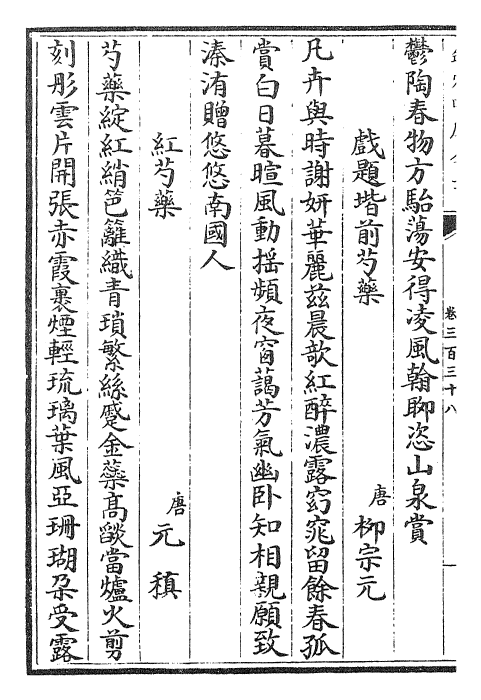 卷三百三十八
鬱陶春物方駘蕩安得凌風翰聊恣山泉賞
戲題堦前芍藥
唐 柳宗元
凡卉與時謝妍華麗兹晨欹紅醉濃露窈窕留餘春孤
賞白日暮暄風動摇頻夜窗藹芳氣幽卧知相親願致
溱洧贈悠悠南國人
紅芍藥
唐 元稹
芍藥綻紅綃笆籬織青瑣繁絲蹙金蕋高燄當爐火剪
刻彤雲片開張赤霞裹煙輕琉璃葉風亞珊瑚朶受露